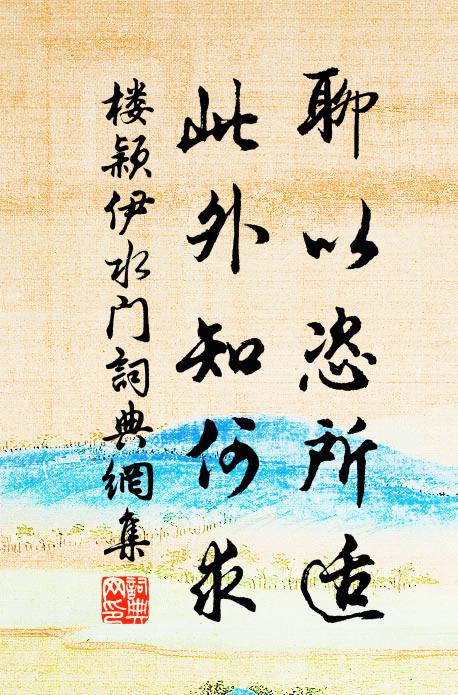 聊以恣所适
此外知何求
楼颖伊水门詞典網集
詞典